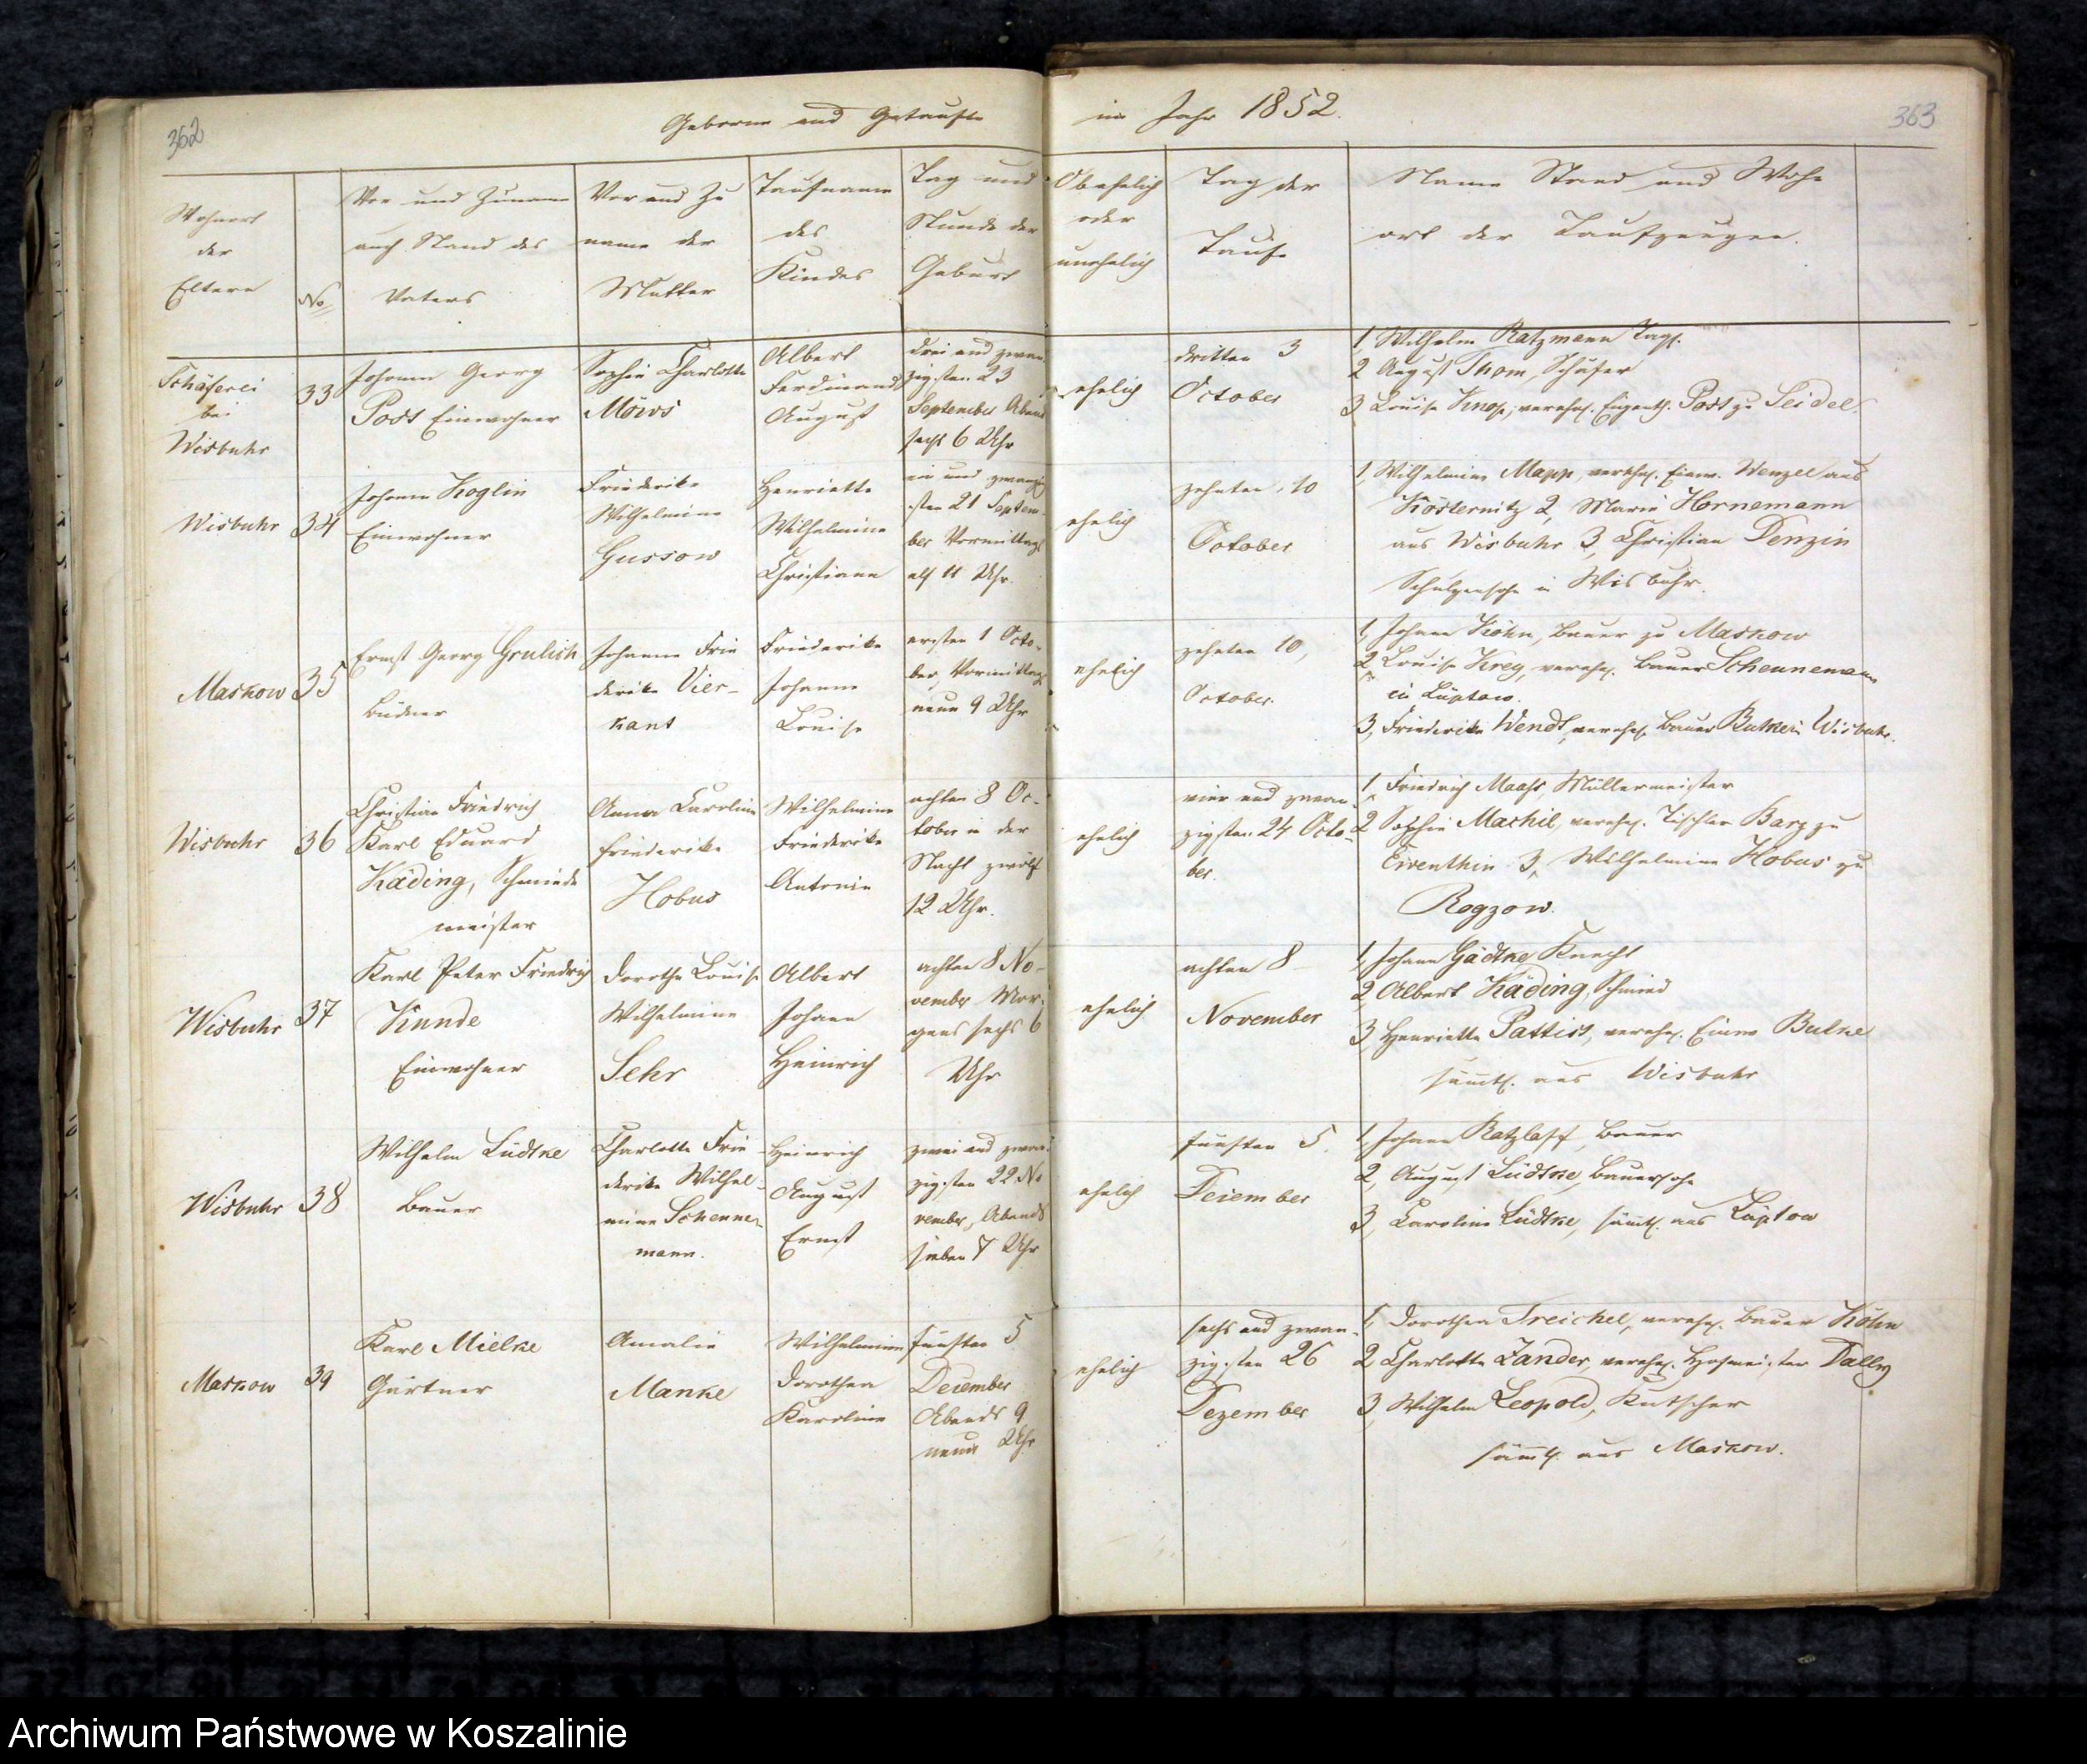 362
Geborne und Getaufte
im Jahr 1852.
363
Wohnort
der
Eltern
No
Vor und Zuname
auch Stand des
Vaters
Vor und Zu
name der
Mutter
Taufname
des
Kindes
Tag und
Stunde der
Geburt
Ob ehelich
oder
unehelich
Tag der
Taufe
Name Stand und Wohn
ort der Taufzeugen.
Schäferei
bei
Wisbuhr
33
Johann Georg
Post Einwohner
Sophie Charlotte
Möws
Albert
Ferdinand
August
drei und zwan
zigsten 23
September Abend
sechs 6 Uhr
ehelich
dritten 3
October
1, Wilhelm Ratzmann Tagl.
2 August Thom, Schäfer
3 Louise Knop, verehel. Eigenth. Post zu Seidel.
Wisbuhr
34
Johann Koglin
Einwohner
Friederike
Wilhelmine
Gussow
Henriette
Wilhelmine
Christiane
ein und zwanzig
sten 21 Septem
ber Vormittags
elf 11 Uhr.
ehelich
zehnten 10
October
1, Wilhelmine Mapp, verehel. Einw. Wenzel aus
Kösternitz 2, Marie Hornemann
aus Wisbuhr 3, Christian Denzin
Schulzensohn in Wisbuhr.
Maskow
35
Ernst Georg Grulich
Büdner
Johanne Frie
derike Vier-
kant
Friederike
Johanne
Louise
ersten 1 Octo-
ber, Vormittags
neun 9 Uhr
ehelich
zehnten 10,
October.
1, Johann Köhn, Bauer zu Maskow
2 Louise Krey, verehel. Bauer Scheunemann
in Lüptow.
3, Friederike Wendt, verehel. Bauer Butke in Wisbuhr.
Wisbuhr
36
Christian Friedrich
Karl Eduard
Käding, Schmiede
meister
Anna Caroline
Friederike
Hobus
Wilhelmine
Friederike
Antonie
achten 8 Oc-
tober in der
Nacht zwölf
12 Uhr.
ehelich
vier und zwan
zigsten 24 Octo-
ber.
1, Friedrich Maass, Müllermeister
2 Sophie Machil, verehel. Tischler Barz zu
Eiventhin 3, Wilhelmine Hobus zu
Rogzow.
Wisbuhr
37
Karl Peter Friedrich
Kunde
Einwohner
Dorothe Louise
Wilhelmine
Sehr
Albert
Johann
Heinrich
achten 8 No-
vember Mor-
gens sechs 6
Uhr
ehelich
achten 8
November
1, Johann Gädtke, Knecht
2, Albert Käding, Schmied
3, Henriette Pattist, verehel. Einw Butke
sämtl. aus Wisbuhr
Wisbuhr
38
Wilhelm Lüdtke
Bauer
Charlotte Frie
derike Wilhel-
mine Scheune-
mann.
Heinrich
August
Ernst
zwei und zwan-
zigsten 22 No
vember, Abends
sieben 7 Uhr
ehelich
fünften 5.
Dezember
1, Johann Ratzlaff, Bauer
2, August Lüdtke, Bauersohn
3, Caroline Lüdtke, sämtl. aus Lüptow
Maskow
39
Karl Mielke
Gärtner
Amalie
Manke
Wilhelmine
Dorothea
Karoline
fünften 5
Dezember
Abends 9
neun Uhr
ehelich
sechs und zwan-
zigsten 26
Dezember
1, Dorothea Treichel, verehel. Bauer Köhn
2 Charlotte Zander, verehel. Hofmeister Dally
3, Wilhelm Leopold, Kutscher
sämtl. aus Maskow.
Archiwum Państwowe w Koszalinie